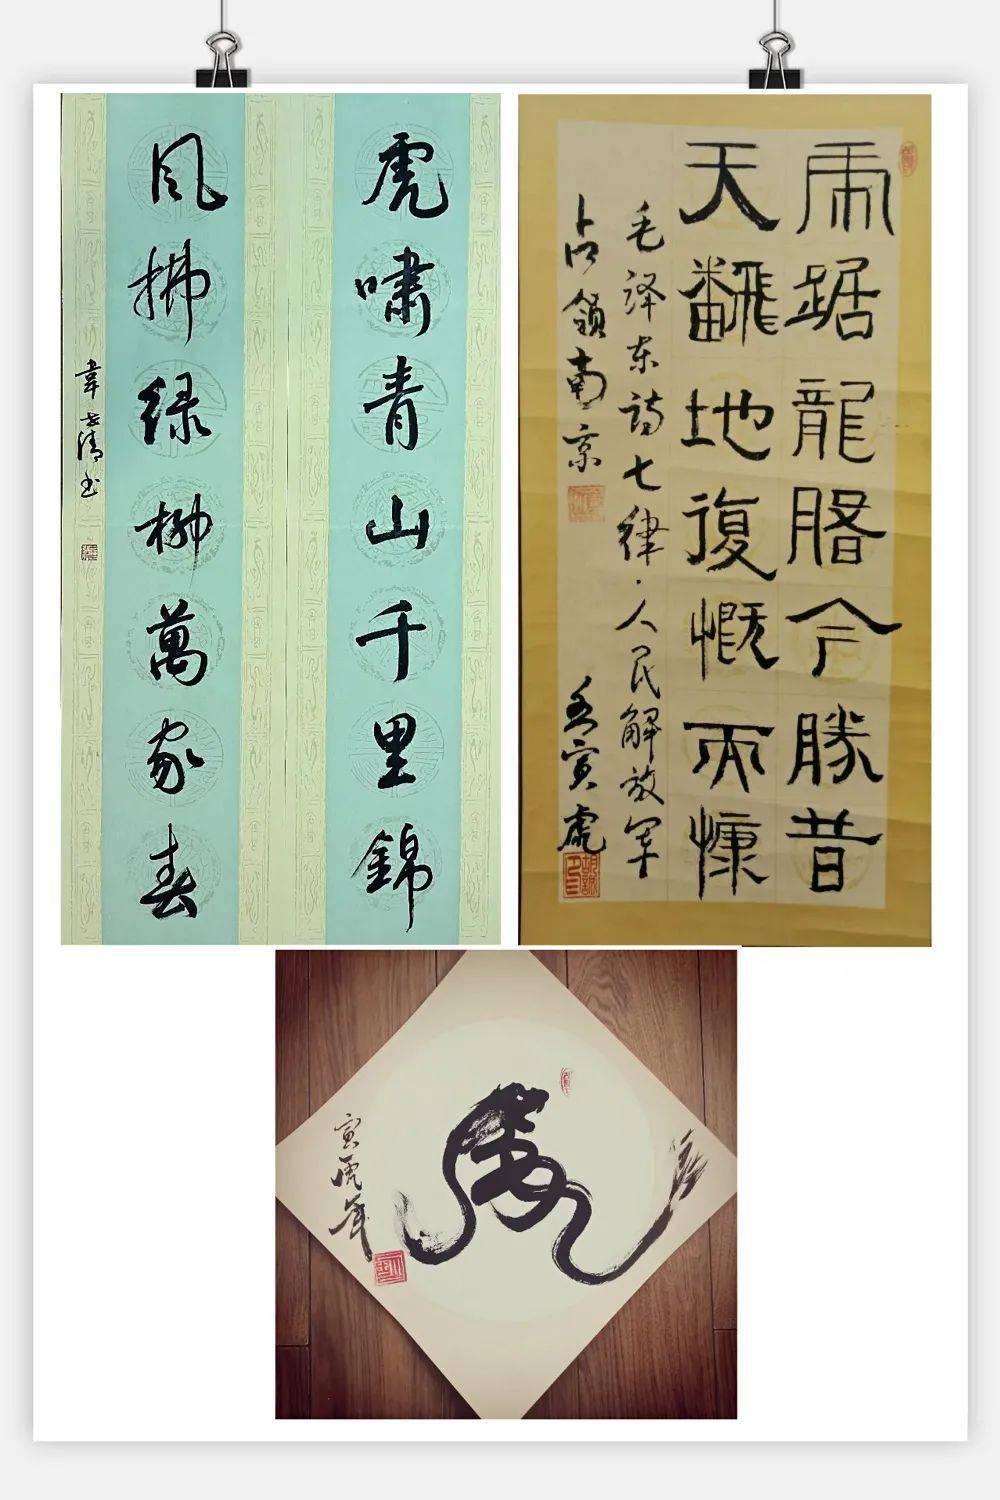 虎啸青山千里錦
风拂绿柳萬家春
韋清书
虎踞龍今勝昔
天翻地復慨而慷
毛泽东诗七律·人民解放军
占领南京
寅虎
虎
寅虎年